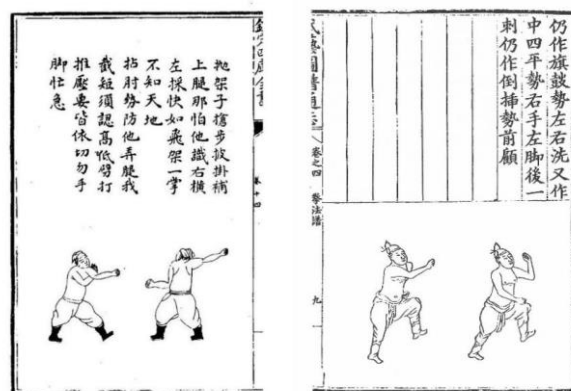 抛架子搶步披掛補
上腿那怕他識右橫
左採快如飛架一掌
不知天地
拈肘勢防他弄腿我
截短須認高低劈打
推壓要皆依切勿手
脚忙急
卷十四
仍作旗鼓勢左右洗又作
中四平勢右手左脚後一
刺仍作倒揷勢前顧
卷之四 拳法譜 九